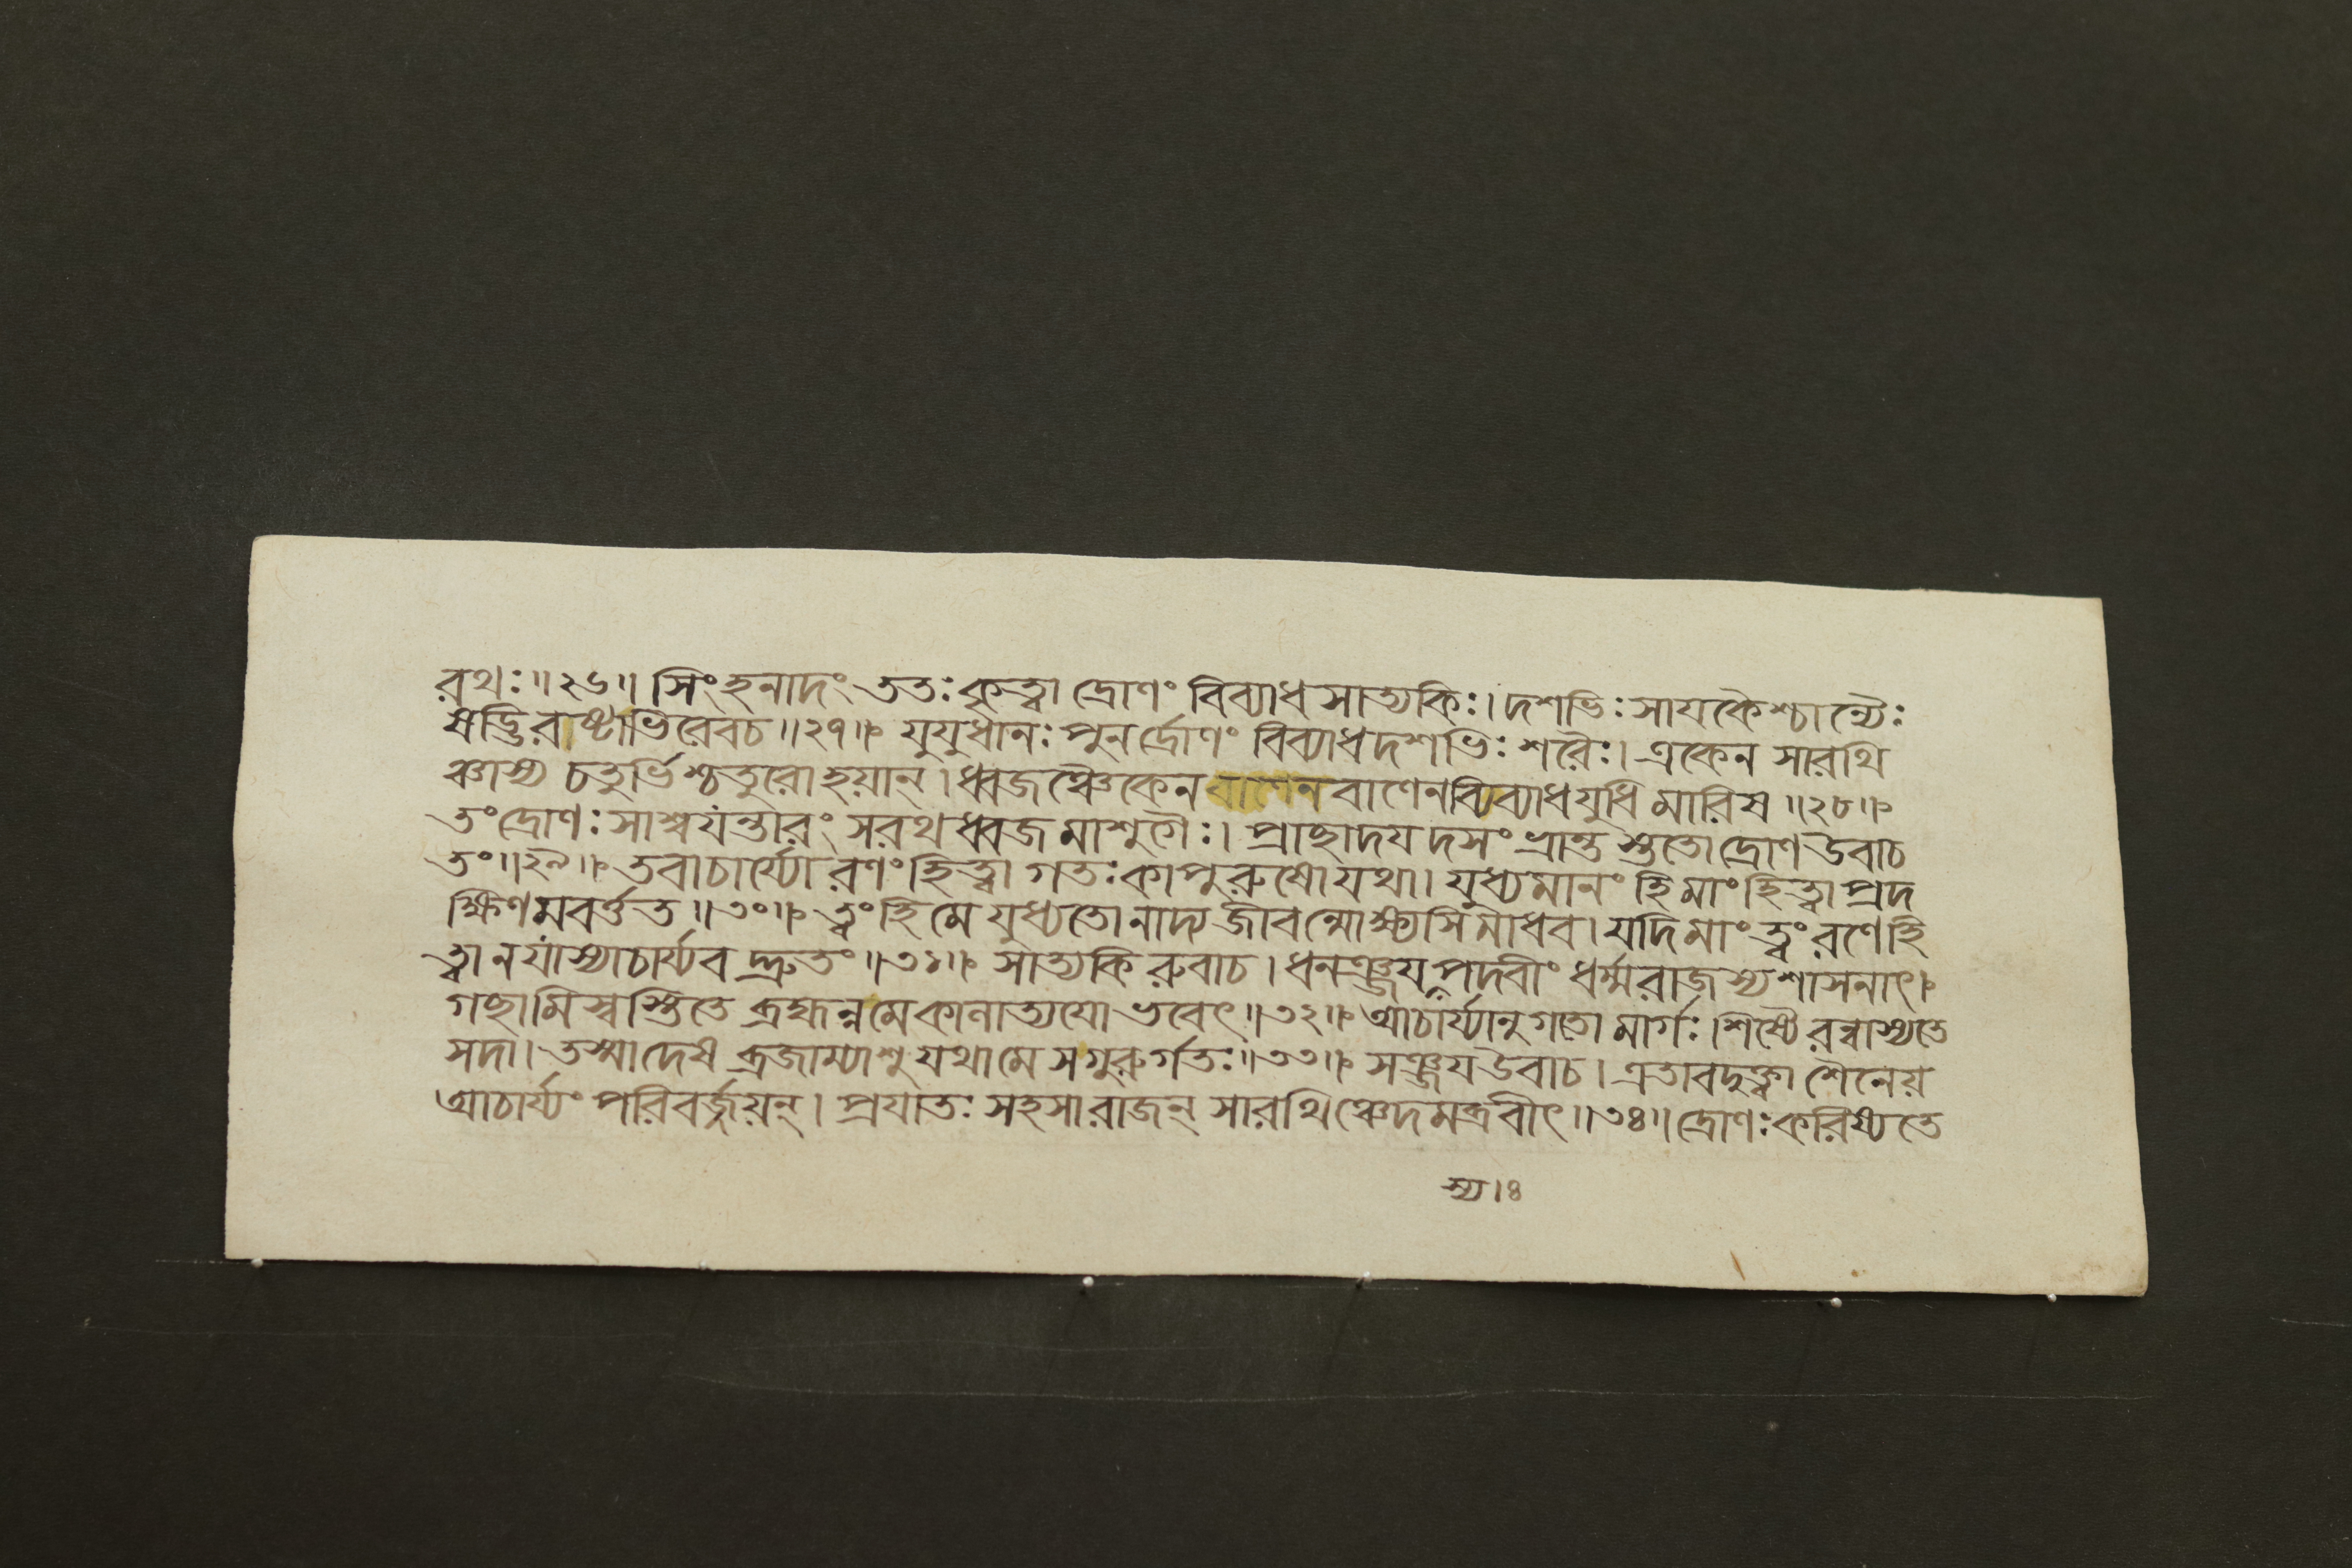 রথঃ॥২৬॥ সিংহনাদং ততঃ কৃত্বা দ্রোণং বিব্যাধ সাত্যকিঃ। দশভিঃ সাযকৈশ্চান্যৈঃ
ষড্ভিরাষ্টাভিরেবচ॥২৭॥ যুযুধানঃ পুনর্দ্রোণং বিব্যাধ দশভিঃ শরৈঃ। একেন সারথি
ঞ্চাস্য চতুর্ভিশ্চতুরো হয়ান্। ধ্বজঞ্চৈকেন বাণেন বাণেন বিব্যাধ যুধি মারিষ॥২৮॥
তং দ্রোণঃ সাশ্বযন্তারং সরথধ্বজমাশুগৈঃ। প্রাছাদযদসংভ্রান্তস্ততো দ্রোণ উবাচ
তং॥২৯॥ তবাচার্য্যো রণং হিত্বা গতঃ কাপুরুষো যথা। যুধ্যমানং হি মাং হিত্বা প্রদ
ক্ষিণমবর্ত্তত॥৩০॥ ত্বং হি মে যুধ্যতো নাদ্য জীবন্মোক্ষ্যসি মাধব। যদি মাং ত্বং রণে হি
ত্বা ন যাস্যাচার্য্যবদ্দ্রুতং॥৩১॥ সাত্যকিরুবাচ। ধনঞ্জয়পদবীং ধর্ম্মরাজস্য শাসনাৎ।
গছামি স্বস্তি তে ব্রহ্মন্নমে কানাত্যযো ভবেৎ॥৩২॥ আচার্য্যানুগতো মার্গঃ। শিষ্যৈরন্বাস্যতে
সদা। তস্মাদেষ ব্রজাম্যাশু যথা মে স গুরুর্গতঃ॥৩৩॥ সঞ্জয উবাচ। এতাবদুক্ত্বা শৈনেয়
আচার্য্যং পরিবর্জ্জয়ন্। প্রযাতঃ সহসা রাজন্ সারথিঞ্চেদমব্রবীৎ॥৩৪॥ দ্রোণঃ করিষ্যতে
স্য।৪